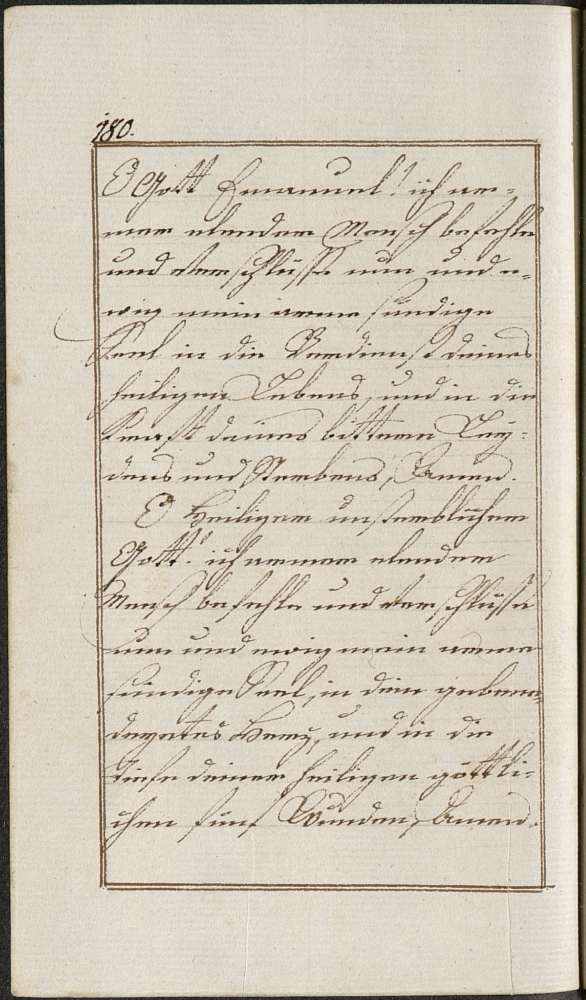 180.
O Gott Emanuel! ich ar-
mer elender Mensch befehle
und verschlüsse nun und e-
wig mein arme sündige
Seel in die Verdienst deines
heiligen Lebens, und in die
Kraft deines bittern Ley-
dens und Sterbens, Amen.
O Heiliger unsterblicher
Gott! ich armer elender
Mensch befehle und verschlüsse
nun und ewig mein arme
sündige Seel, in dein gebene-
deytes Herz, und in die
tiefe deiner heiligen göttli-
chen fünf Wunden, Amen.